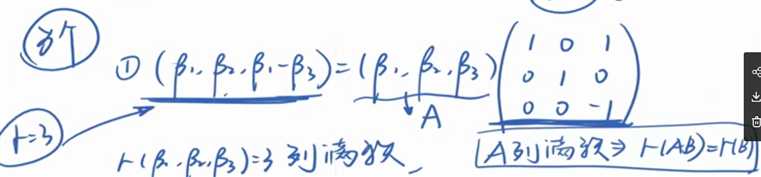 ① (β₁, β₂, β₁-β₃) = (β₁, β₂, β₃) ( 1 0 1
0 1 0
0 0 -1 )
A
r=3
r(β₁, β₂, β₃)=3 列满秩
A列满秩⇒ r(AB)=r(B)